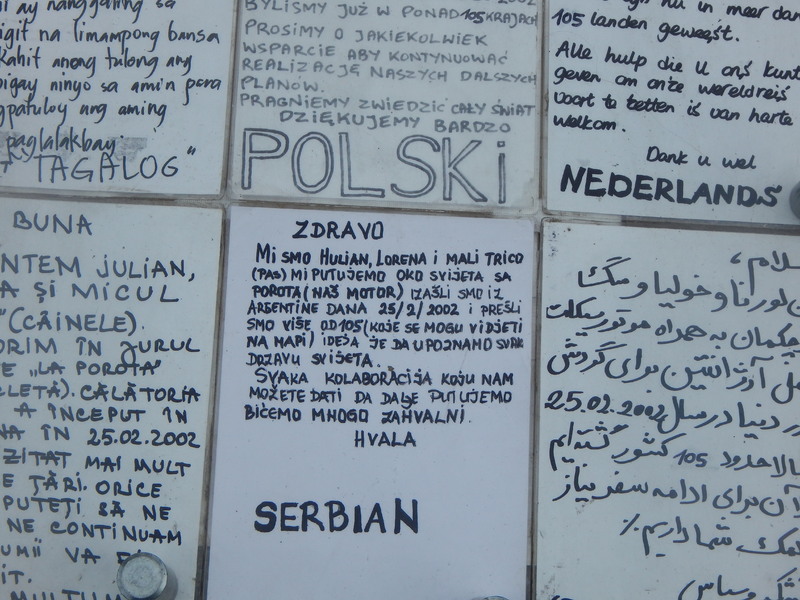 ay nanggaling sa
na limampong bansa
kahit anong tulong ang
ninyo sa amin para
ang aming
paglalakbay.
TAGALOG"
BYLIŚMY JUŻ W PONAD 105 KRAJACH
PROSIMY O JAKIEKOLWIEK
WSPARCIE ABY KONTYNUOWAĆ
REALIZACJĘ NASZYCH DALSZYCH
PLANÓW.
PRAGNIEMY ZWIEDZIĆ CAŁY ŚWIAT
DZIĘKUJEMY BARDZO
POLSKi
in meer dan
105 landen geweest.
Alle hulp die U ons kunt
geven om onze wereldreis
voort te zetten is van harte
welkom.
Dank u wel
NEDERLANDS
BUNA
JULIAN,
ȘI MICUL
(CÂINELE).
ÎN JURUL
"LA POROTA"
CĂLĂTORIA
A ÎNCEPUT ÎN
ÎN 25.02.2002
MAI MULT
ȚĂRI. ORICE
PUTEȚI SĂ NE
NE CONTINUAM
VA
ZDRAVO
Mi SMO HULIAN, LORENA i MALI TRICO
(PAS) Mi PUTUJEMO OKO SVIJETA SA
POROTA (NAŠ MOTOR) IZAŠLI SMO IZ
ARGENTINE DANA 25/2/2002 i PREŠLI
SMO VIŠE OD 105 (KOJE SE MOGU VIDJETI
NA MAPI) IDEJA JE DA UPOZNAMO SVAK
DRZAVU SVIJETA.
SVAKA KOLABORACIJA KOJU NAM
MOŽETE DATI DA DALJE PUTUJEMO
BIĆEMO MNOGO ZAHVALNI.
HVALA
SERBIAN
سلام،
لورنا و خولیا و
به همراه موتورسیکلت
آرژانتین برای گردش
دنیا در سال 25.02.2002
حدود 105 کشور گشته‌ایم
آن برای ادامه سفر نیاز
کمک شما داریم٪